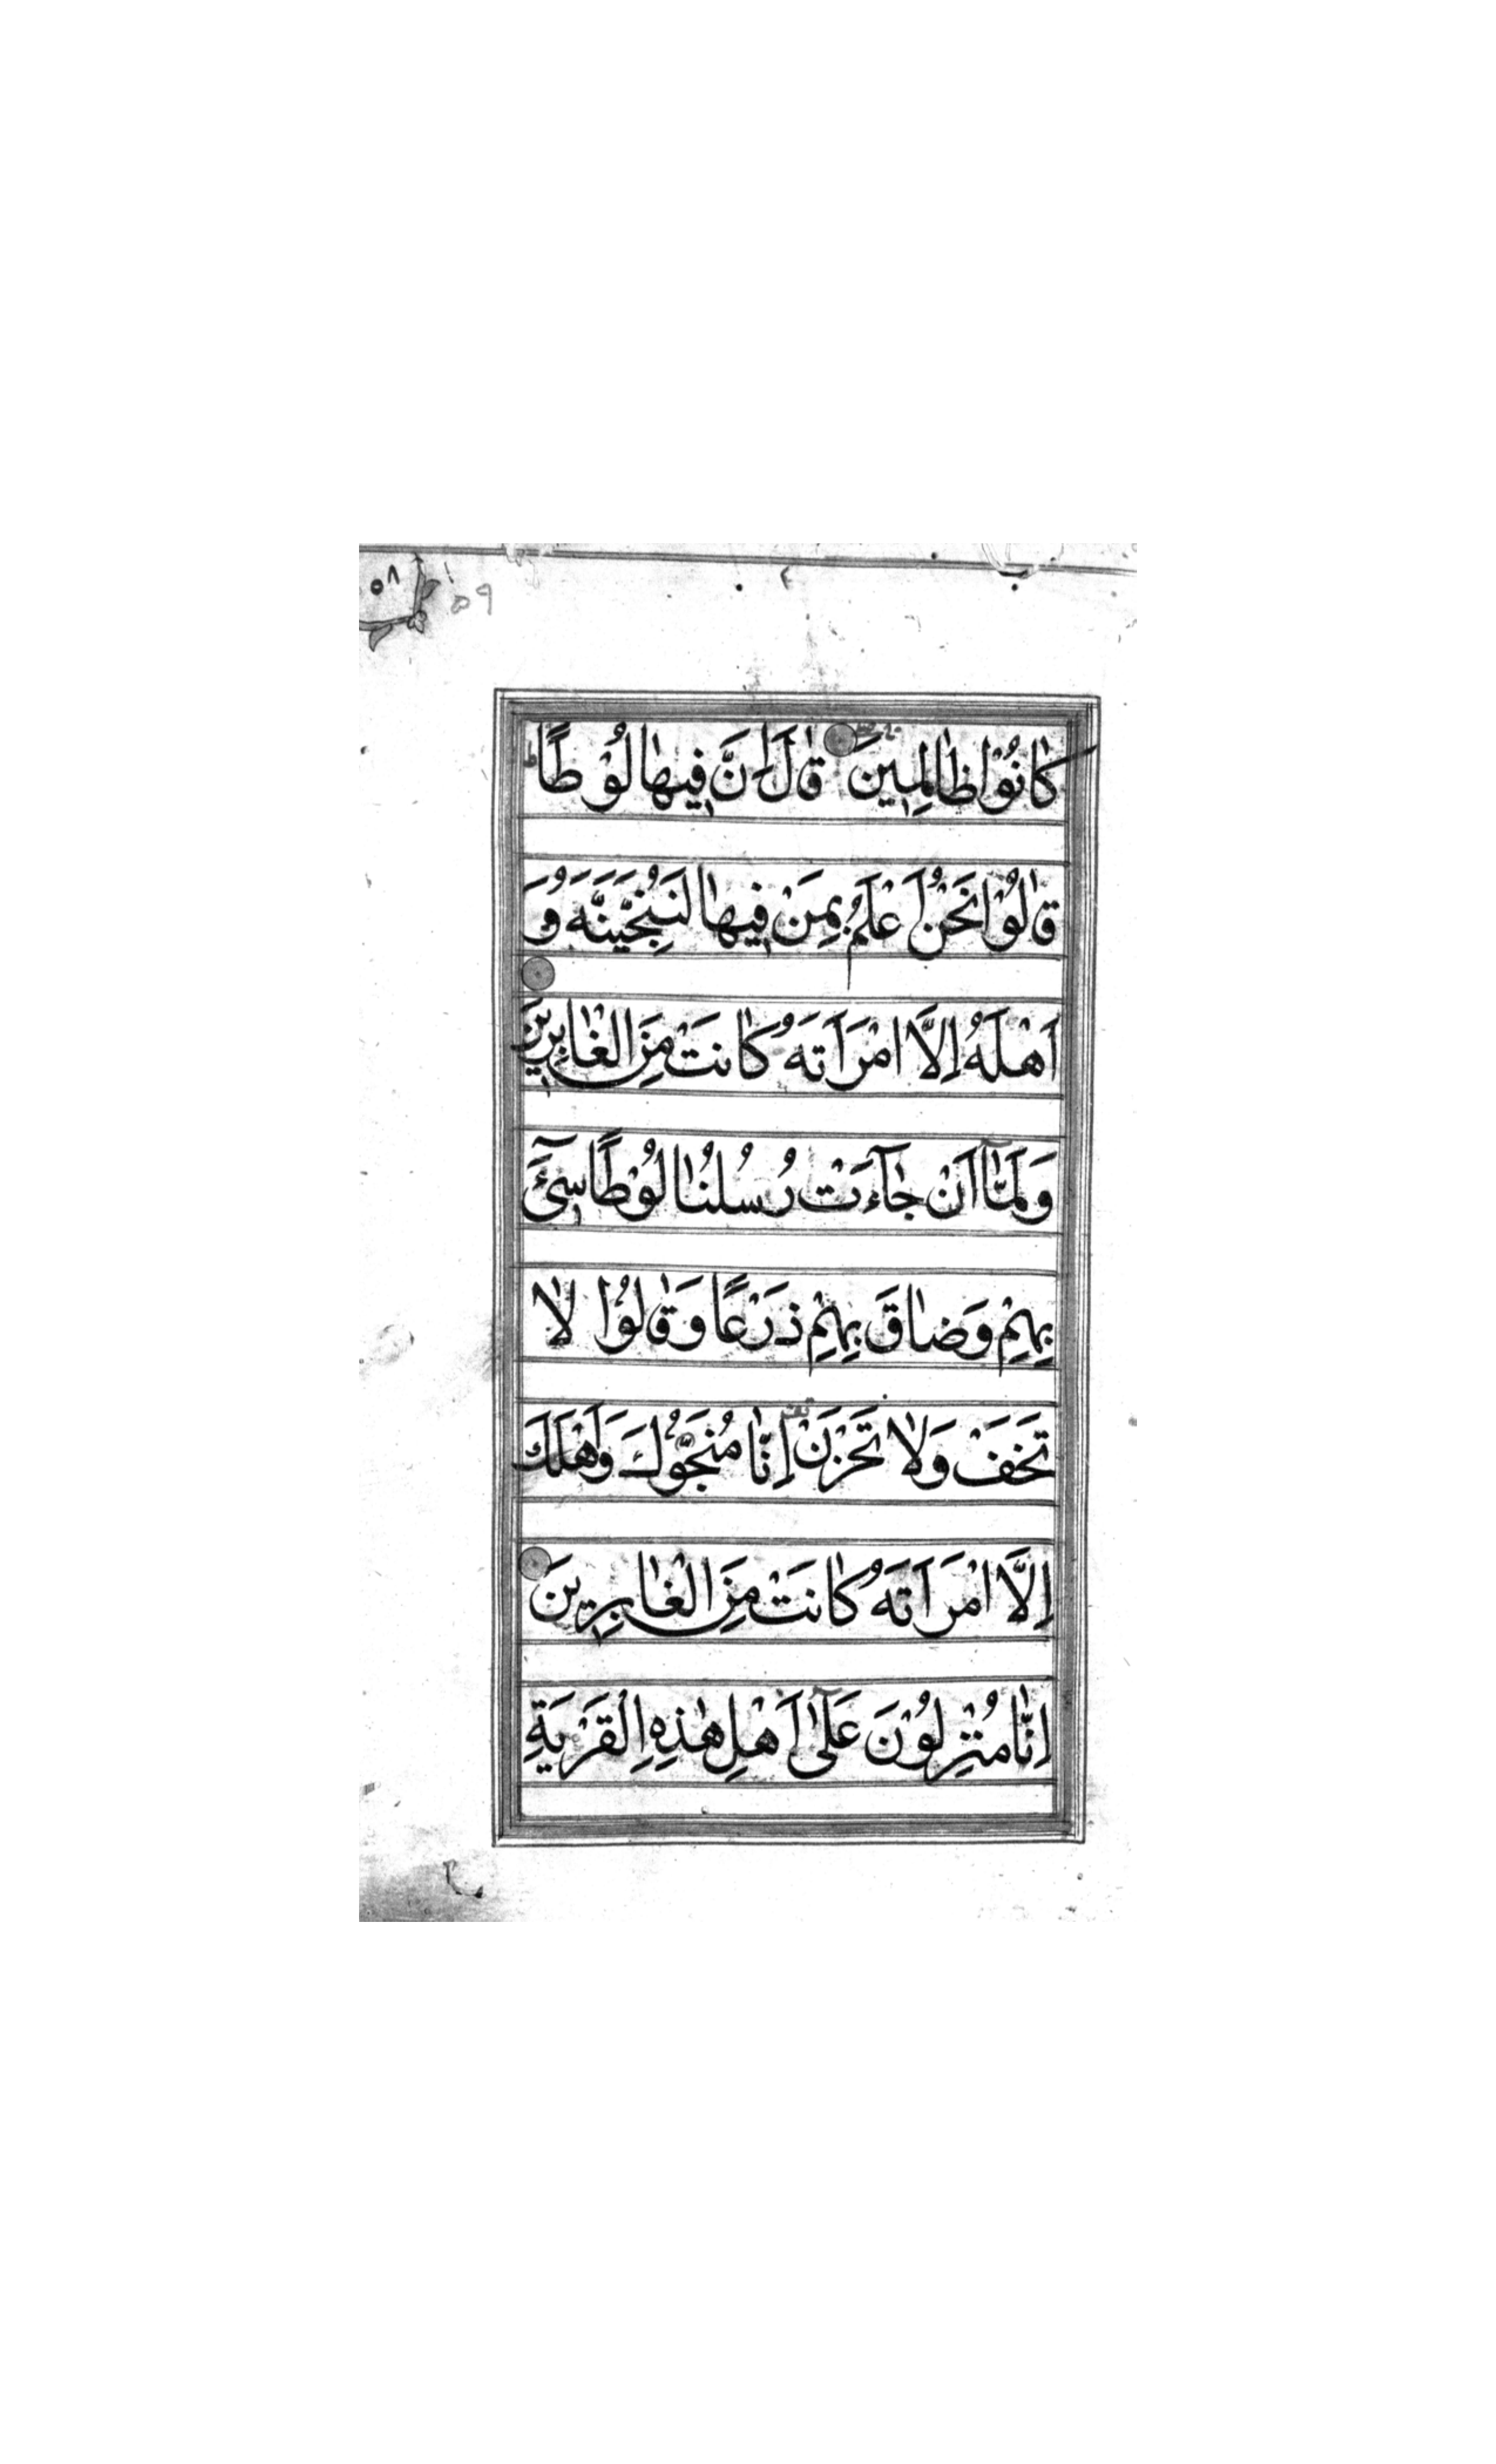 ٥٨
٥٩
كانُوْا ظالِمِينَ قالَ اِنَّ فِيها لُوْطًا
قالُوْا نَحْنُ اَعْلَمُ بِمَنْ فِيها لَنُنَجِّيَنَّهُ وَ
اَهْلَهُ اِلَّا امْرَاَتَهُ كانَتْ مِنَ الْغابِرِينَ
وَلَمَّآ اَنْ جآءَتْ رُسُلُنا لُوْطًا سِيٓءَ
بِهِمْ وَضاقَ بِهِمْ ذَرْعًا وَقالُوْا لا
تَخَفْ وَلا تَحْزَنْ اِنّا مُنَجُّوْكَ وَاَهْلَكَ
اِلَّا امْرَاَتَهُ كانَتْ مِنَ الْغابِرِينَ
اِنّا مُنْزِلُوْنَ عَلٰٓى اَهْلِ هٰذِهِ الْقَرْيَةِ